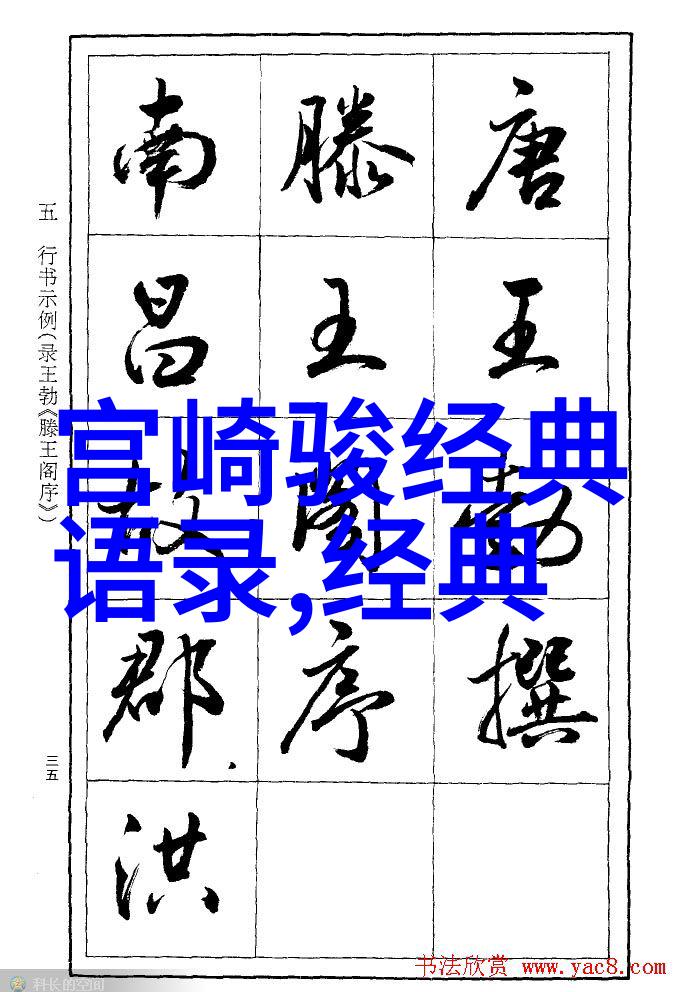 唐王勃撰
滕王阁序
南昌故郡洪
五 行书示例(录王勃《滕王阁序》)
三五
宫崎骏经典
语录,经典
书法欣赏 www.yac8.com
科长的空间